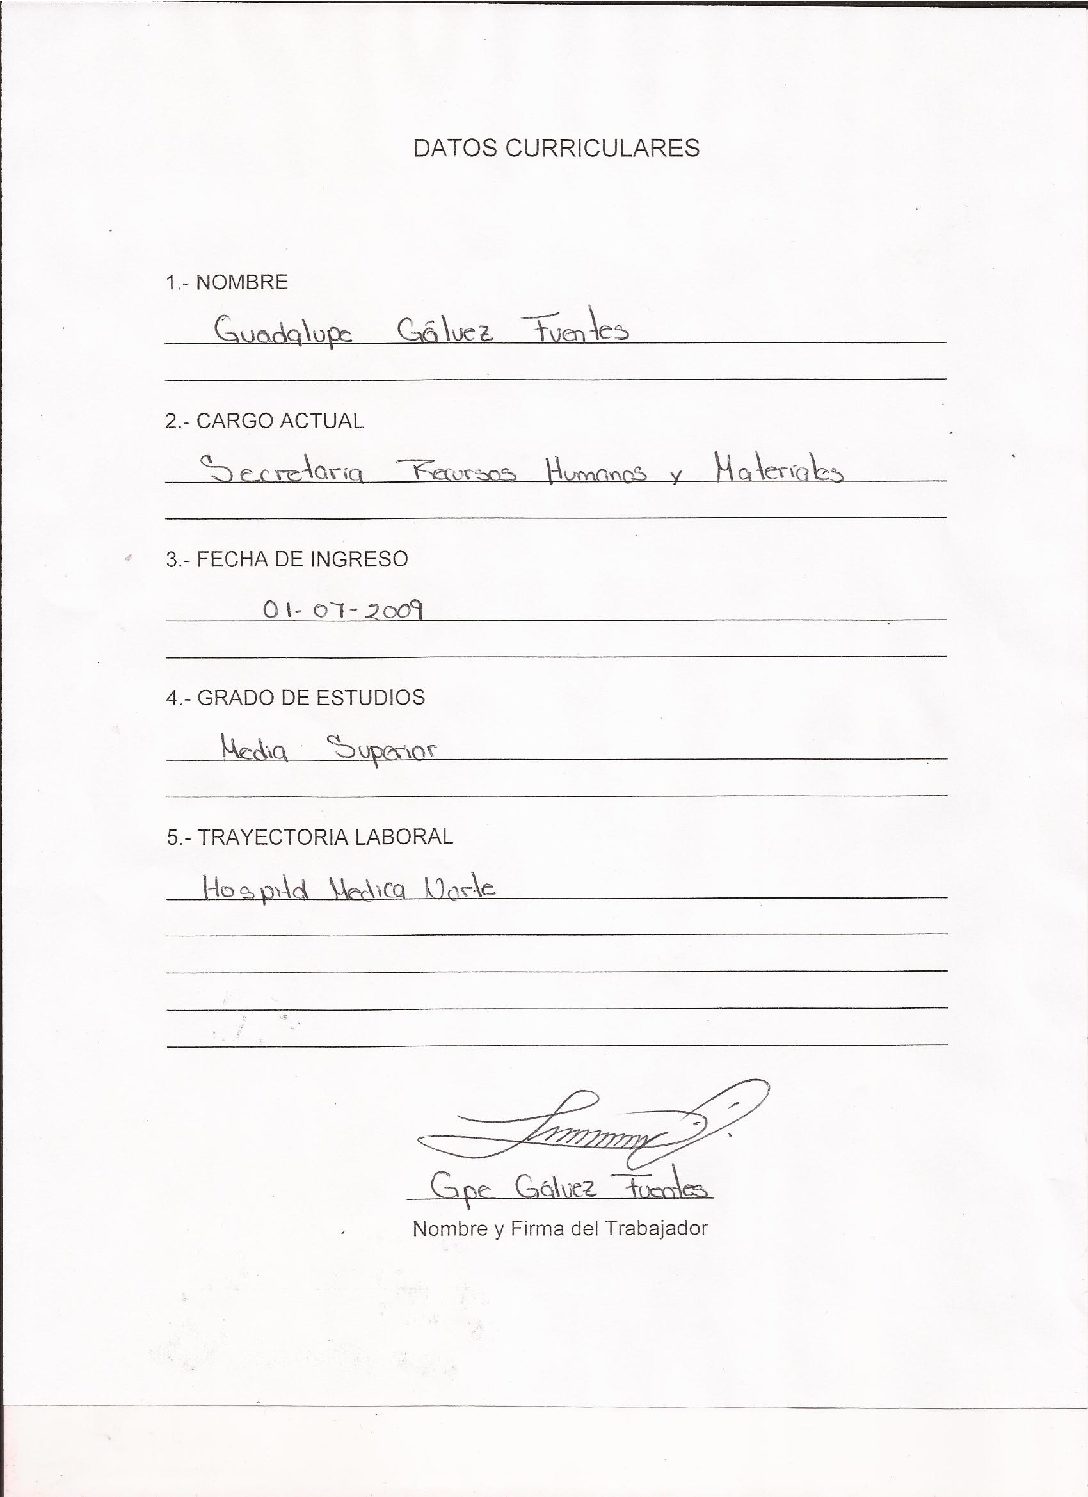 DATOS CURRICULARES
1.- NOMBRE
Guadalupe Gálvez Fuentes
2.- CARGO ACTUAL
Secretaria Recursos Humanos y Materiales
3.- FECHA DE INGRESO
01-07-2009
4.- GRADO DE ESTUDIOS
Media Superior
5.- TRAYECTORIA LABORAL
Hospital Medica Norte
Gpe Gálvez Fuentes
Nombre y Firma del Trabajador